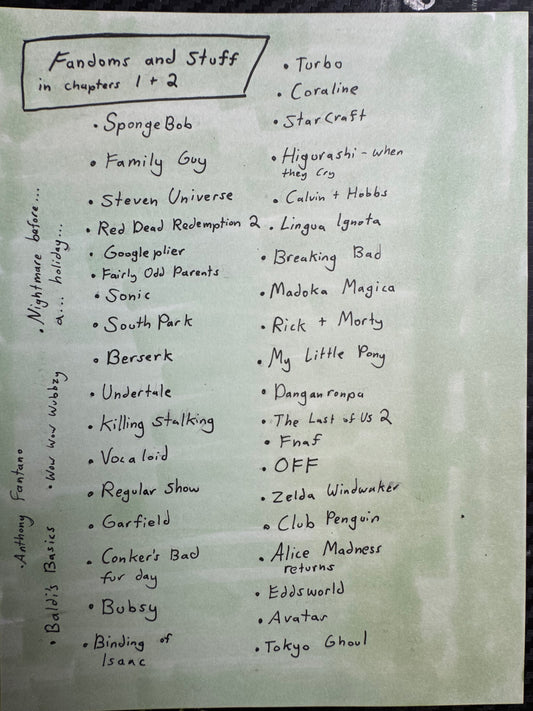 Fandoms and Stuff
in chapters 1 + 2
• SpongeBob
• Family Guy
• Steven Universe
• Red Dead Redemption 2
• Googleplier
• Fairly Odd Parents
• Sonic
• South Park
• Berserk
• Undertale
• Killing Stalking
• Vocaloid
• Regular Show
• Garfield
• Conker's Bad
fur day
• Bubsy
• Binding of
Isaac
• Turbo
• Coraline
• StarCraft
• Higurashi - when
they Cry
• Calvin + Hobbs
• Lingua Ignota
• Breaking Bad
• Madoka Magica
• Rick + Morty
• My Little Pony
• Danganronpa
• The Last of Us 2
• Fnaf
• OFF
• Zelda Windwaker
• Club Penguin
• Alice Madness
returns
• Eddsworld
• Avatar
• Tokyo Ghoul
• Nightmare before...
a... holiday...
• Wow Wow Wubbzy
• Anthony Fantano
• Baldi's Basics